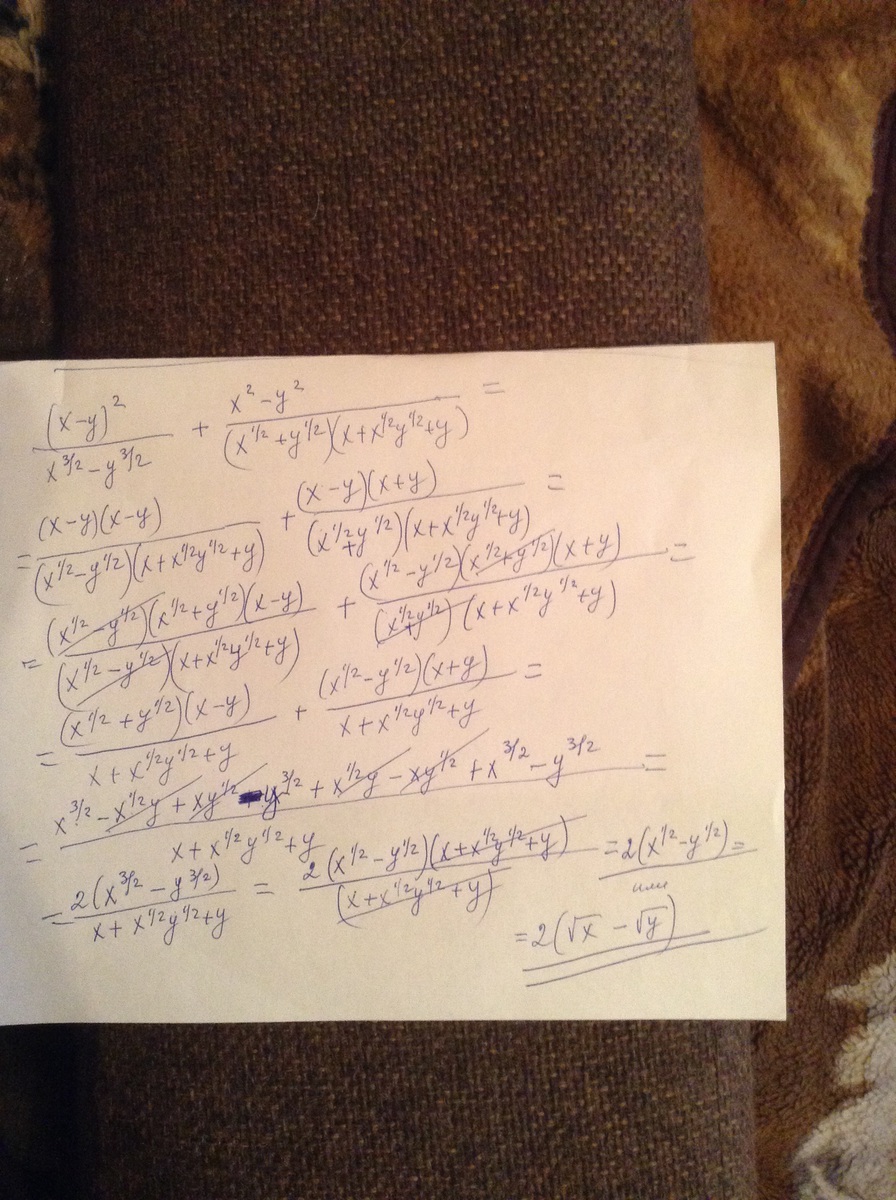 (x-y)²/(x^3/2 - y^3/2) + (x² - y²)/((x^1/2 + y^1/2)(x + x^1/2 y^1/2 + y)) =
= (x-y)(x-y)/((x^1/2 - y^1/2)(x + x^1/2 y^1/2 + y)) + (x-y)(x+y)/((x^1/2 + y^1/2)(x + x^1/2 y^1/2 + y)) =
= (x^1/2 - y^1/2)(x^1/2 + y^1/2)(x-y)/((x^1/2 - y^1/2)(x + x^1/2 y^1/2 + y)) + (x^1/2 - y^1/2)(x^1/2 + y^1/2)(x+y)/((x^1/2 + y^1/2)(x + x^1/2 y^1/2 + y)) =
= (x^1/2 + y^1/2)(x-y)/(x + x^1/2 y^1/2 + y) + (x^1/2 - y^1/2)(x+y)/(x + x^1/2 y^1/2 + y) =
= (x^3/2 - x^1/2 y + xy^1/2 - y^3/2 + x^1/2 y - xy^1/2 + x^3/2 - y^3/2)/(x + x^1/2 y^1/2 + y) =
= 2(x^3/2 - y^3/2)/(x + x^1/2 y^1/2 + y) = 2(x^1/2 - y^1/2)(x + x^1/2 y^1/2 + y)/(x + x^1/2 y^1/2 + y) = 2(x^1/2 - y^1/2) =
или
= 2(√x - √y)